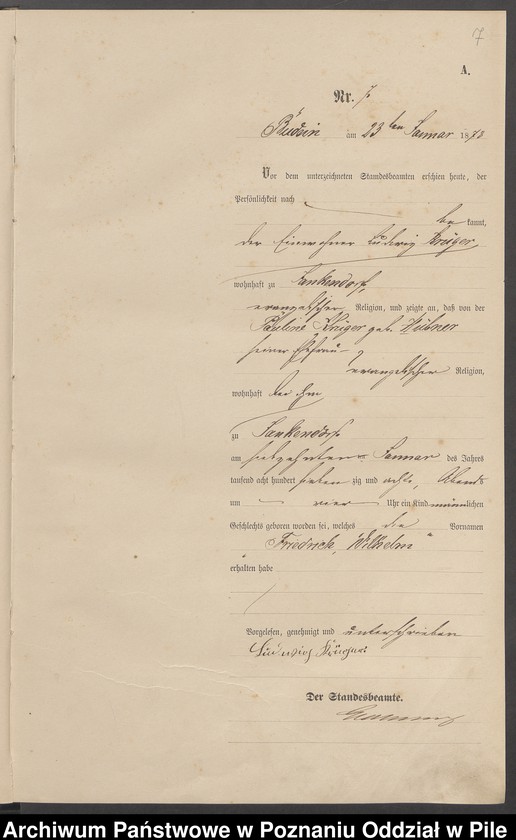 7
A.
Nr. 7.
Budsin am 23ten Januar 1878
Vor dem unterzeichneten Standesbeamten erschien heute, der
Persönlichkeit nach
be kannt,
der Einwohner Ludwig Krüger
wohnhaft zu Jankendorf,
evangelischer Religion, und zeigte an, daß von der
Pauline Krüger geb. Hübner
seiner Ehefrau
evangelischer Religion,
wohnhaft bei ihm
zu Jankendorf
am siebzehnten Januar des Jahres
tausend acht hundert sieben zig und acht, Abends
um vier Uhr ein Kind männlichen
Geschlechts geboren worden sei, welches die Vornamen
"Friedrich, Wilhelm"
erhalten habe
Vorgelesen, genehmigt und unterschrieben
Ludwig Krüger
Der Standesbeamte.
Archiwum Państwowe w Poznaniu Oddział w Pile